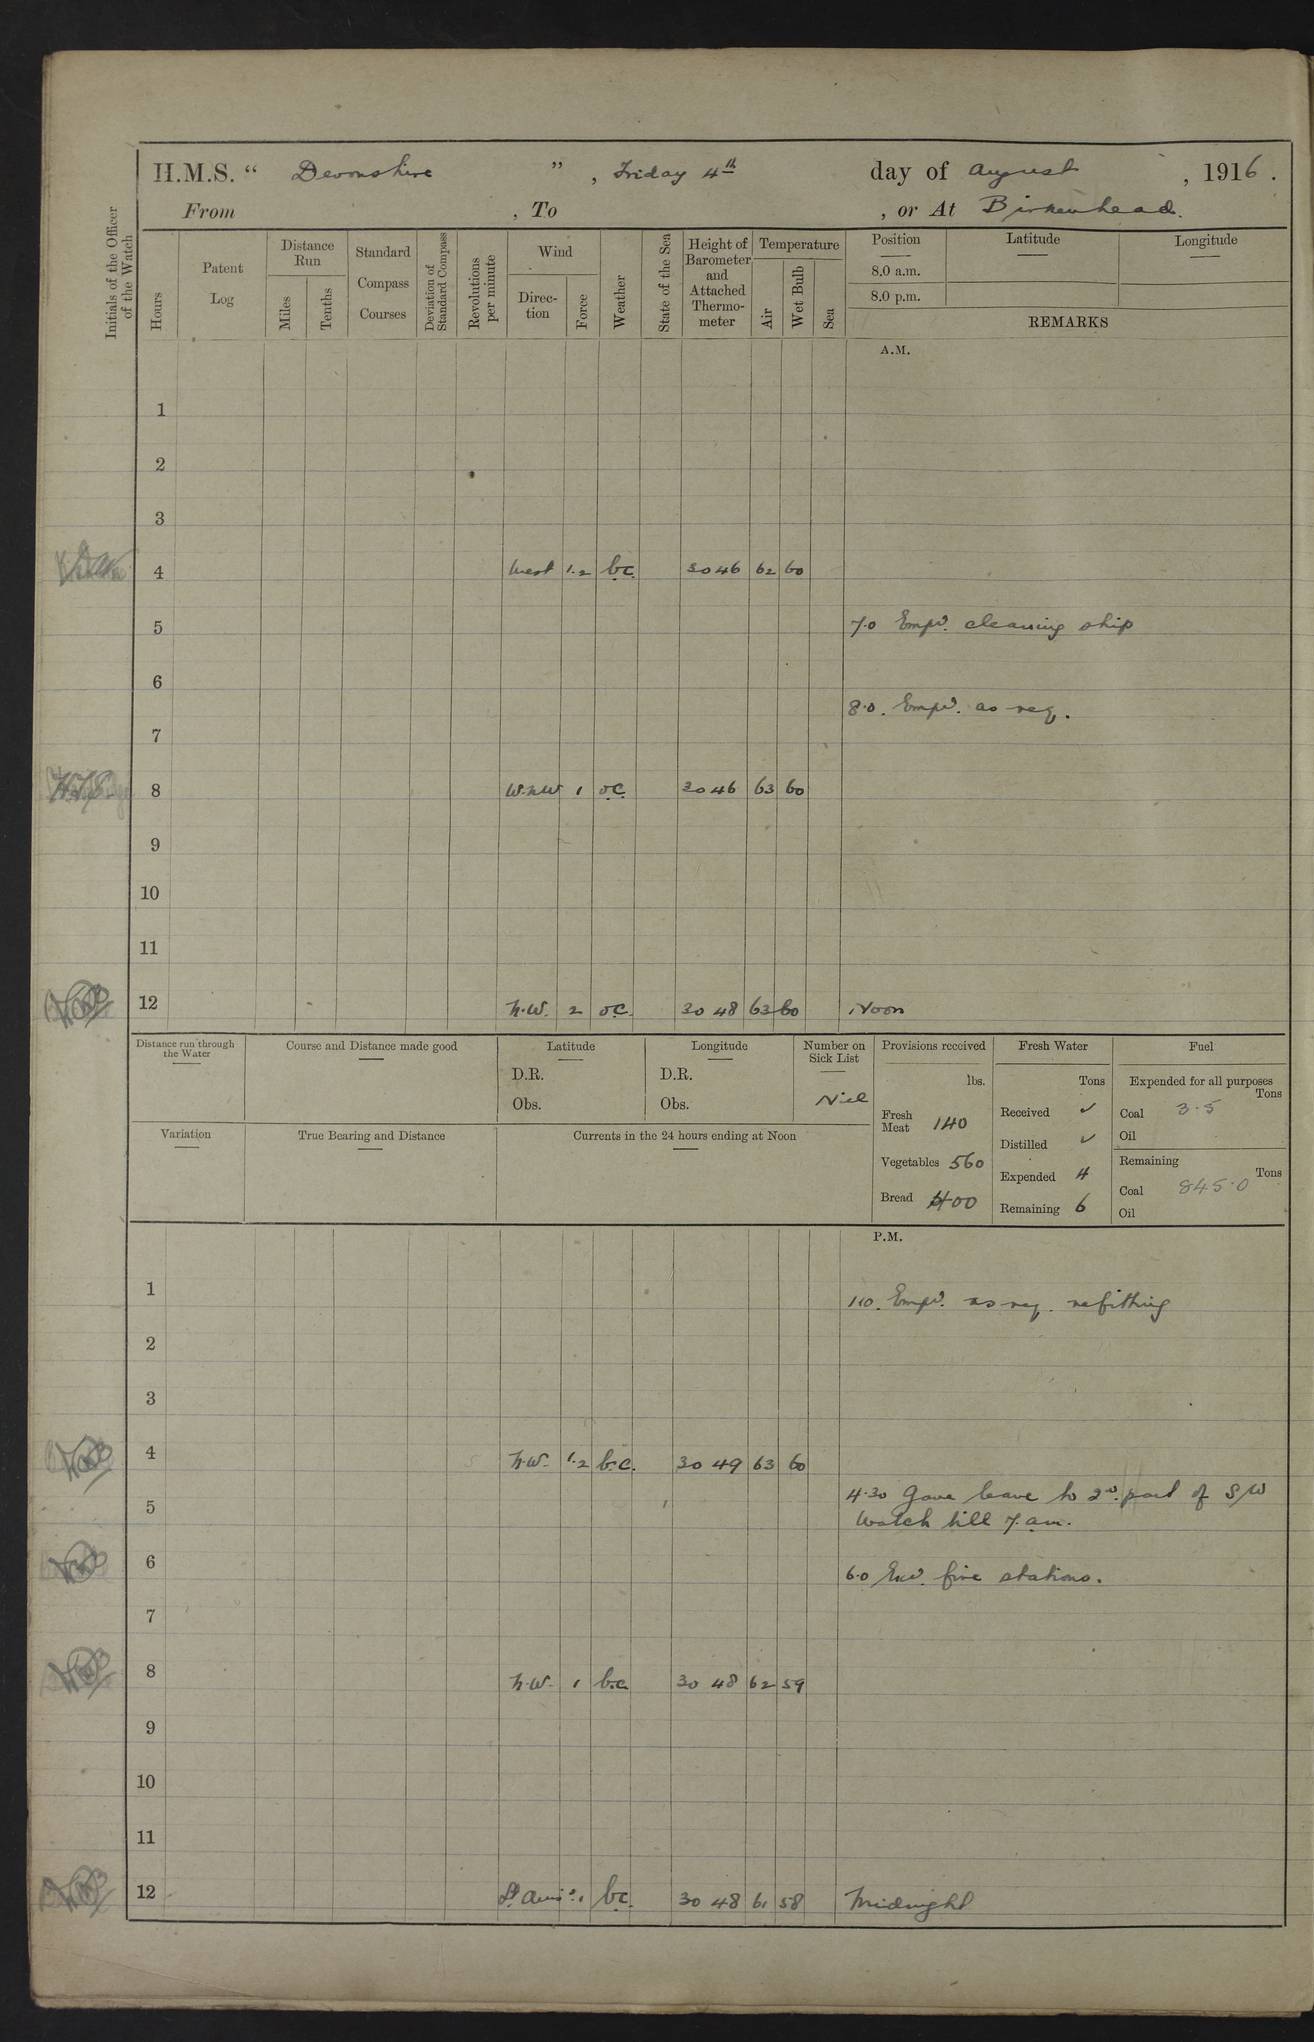 H.M.S. “ Devonshire ” , Friday 4th day of August , 1916 .
From , To , or At Birkenhead.
Initials of the Officer of the Watch
Hours
Patent Log
Distance Run
Miles
Tenths
Standard Compass Courses
Deviation of Standard Compass
Revolutions per minute
Wind
Direc-tion
Force
Weather
State of the Sea
Height of Barometer and Attached Thermo-meter
Temperature
Air
Wet Bulb
Sea
Position
8.0 a.m.
8.0 p.m.
Latitude
Longitude
REMARKS
A.M.
1
2
3
4 West 1.2 b.c. 30 46 62 60
5 7.0 Empd. cleaning ship
6
8.0. Empd. as req.
7
8 W.N.W 1 o.c. 30 46 63 60
9
10
11
12 N.W. 2 o.c. 30 48 63 60 Noon
Distance run through the Water
Course and Distance made good
Latitude
D.R.
Obs.
Longitude
D.R.
Obs.
Number on Sick List
Niel
Variation
True Bearing and Distance
Currents in the 24 hours ending at Noon
Provisions received
lbs.
Fresh Meat 140
Vegetables 560
Bread 400
Fresh Water
Tons
Received ✓
Distilled ✓
Expended 4
Remaining 6
Fuel
Expended for all purposes
Tons
Coal 3.5
Oil
Remaining
Tons
Coal 845.0
Oil
P.M.
1 1.10. Empd. as req. refitting
2
3
4 N.W. 1.2 b.c. 30 49 63 60
4.30 Gave leave to 2nd. part of S/W
5 Watch till 7. am.
6 6.0 Exd. fire stations.
7
8 N.W. 1 b.c. 30 48 62 59
9
10
11
12 Lt Airs. 1 b.c. 30 48 61 58 Midnight